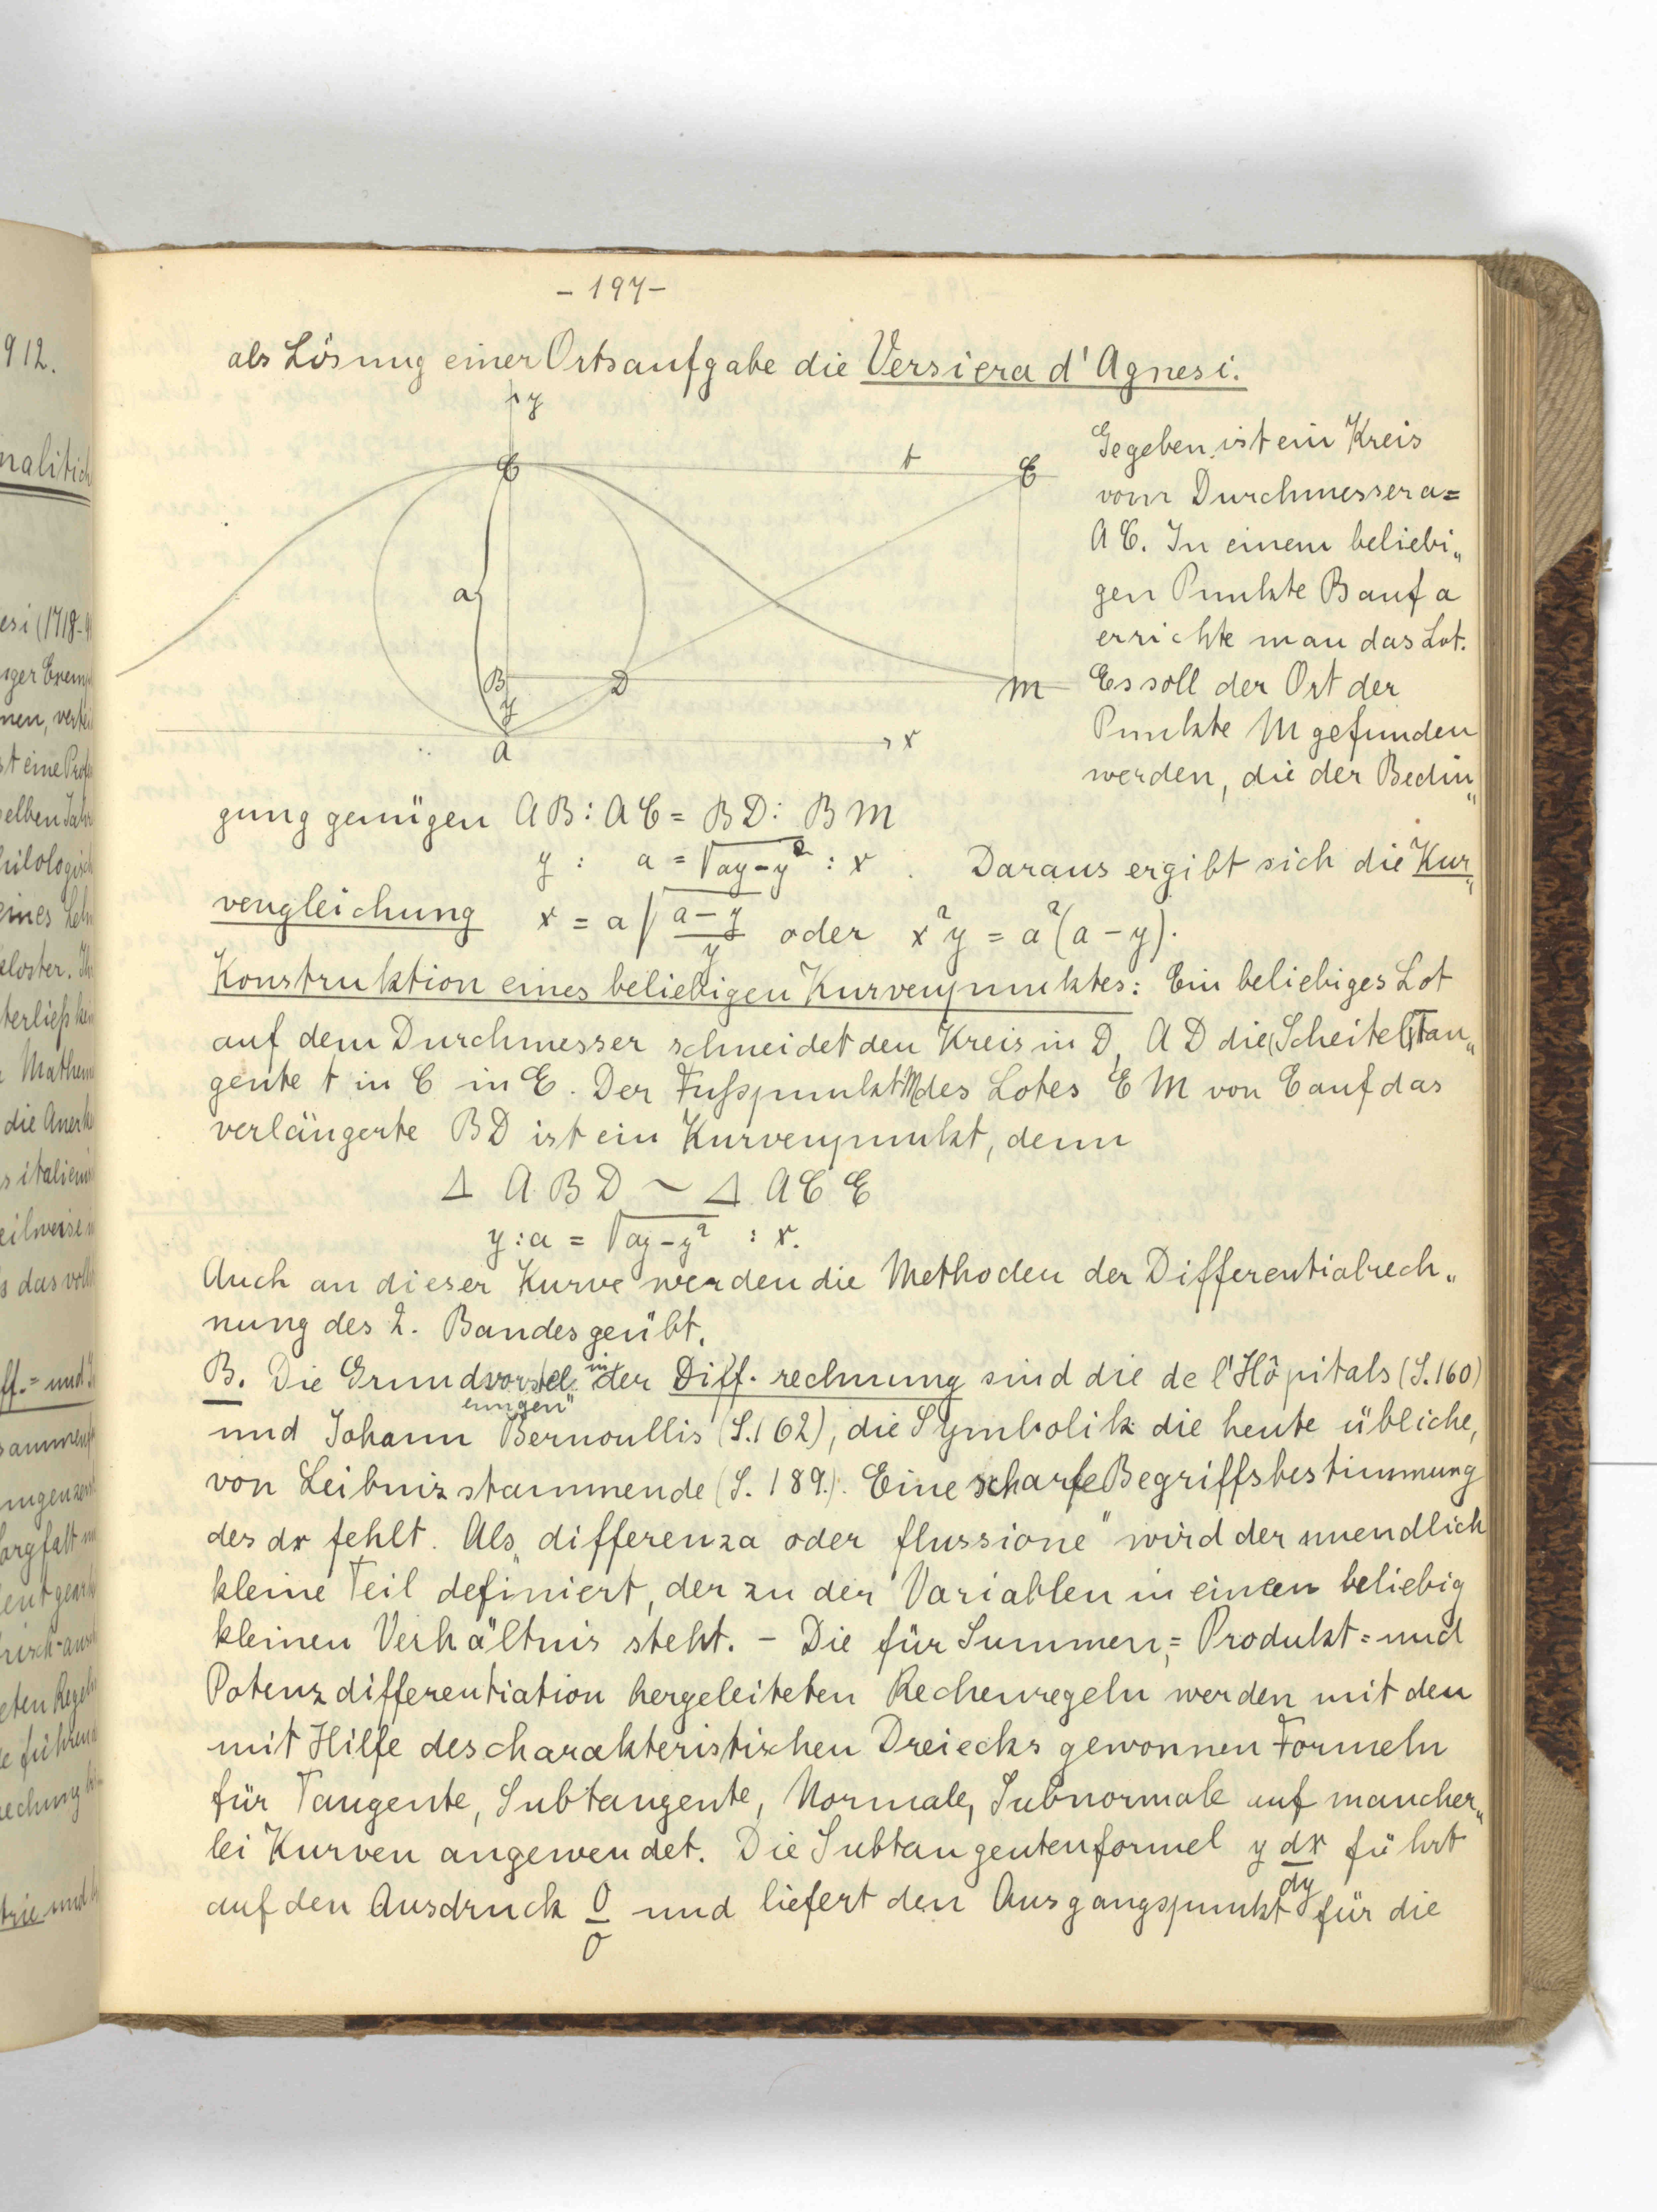 - 197 -
als Lösung einer Ortsaufgabe die Versiera d'Agnesi.
y
C
t
E
a
B
D
M
y
A
x
Gegeben ist ein Kreis
vom Durchmesser a=
AC. In einem beliebi„
gen Punkte B auf a
errichte man das Lot.
Es soll der Ort der
Punkte M gefunden
werden, die der Bedin„
gung genügen AB : AC = BD : BM
y : a = √(ay-y²) : x. Daraus ergibt sich die Kur„
vengleichung x = a √((a-y)/y) oder x²y = a²(a-y).
Konstruktion eines beliebigen Kurvenpunktes: Ein beliebiges Lot
auf dem Durchmesser schneidet den Kreis in D, AD die (Scheitel)Tan„
gente t in C in E. Der Fußpunkt M des Lotes EM von E auf das
verlängerte BD ist ein Kurvenpunkt, denn
Δ ABD ~ Δ ACE
y : a = √(ay-y²) : x.
Auch an dieser Kurve werden die Methoden der Differentialrech„
nung des 2. Bandes geübt.
B. Die Grundvorstellungen in der Diff. rechnung sind die de l'Hôpitals (S. 160)
und Johann Bernoullis (S. 162), die Symbolik die heute übliche,
von Leibniz stammende (S. 189.). Eine scharfe Begriffsbestimmung
des dx fehlt. Als „differenza oder flussione" wird der unendlich
kleine Teil definiert, der zu der Variablen in einem beliebig
kleinen Verhältnis steht. - Die für Summen,= Produkt= und
Potenzdifferentiation hergeleiteten Rechenregeln werden mit den
mit Hilfe des charakteristischen Dreiecks gewonnen Formeln
für Tangente, Subtangente, Normale, Subnormale auf mancher„
lei Kurven angewendet. Die Subtangentenformel y dx/dy führt
auf den Ausdruck 0/0 und liefert den Ausgangspunkt für die
912.